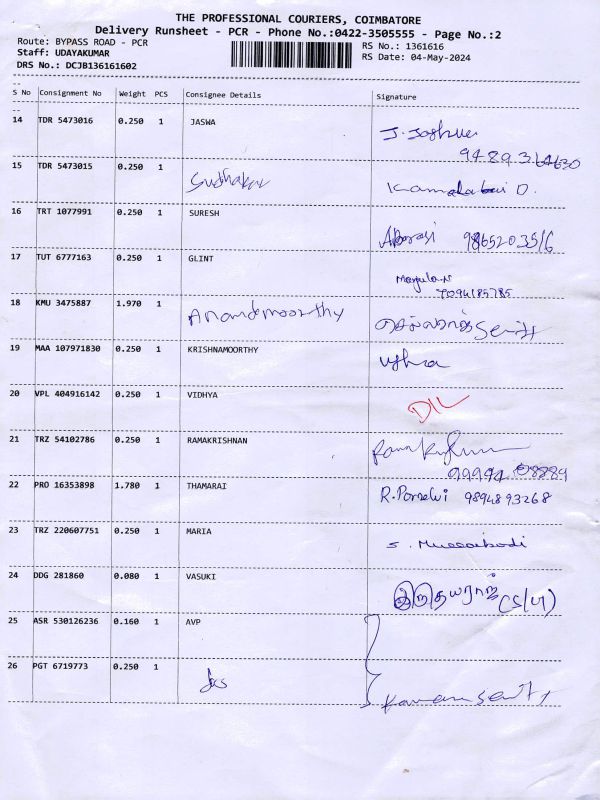 THE PROFESSIONAL COURIERS, COIMBATORE
Delivery Runsheet - PCR - Phone No.:0422-3505555 - Page No.:2
Route: BYPASS ROAD - PCR
RS No.: 1361616
Staff: UDAYAKUMAR
RS Date: 04-May-2024
DRS No.: DCJB136161602
S No Consignment No Weight PCS Consignee Details Signature
14 TDR 5473016 0.250 1 JASWA J. Joshua
9489364630
15 TDR 5473015 0.250 1 Sudhakar Kamalabai D.
16 TRT 1077991 0.250 1 SURESH 9865203516
17 TUT 6777163 0.250 1 GLINT Manjula N
7094185785
18 KMU 3475887 1.970 1 Anandmoorthy
19 MAA 107971830 0.250 1 KRISHNAMOORTHY
20 VPL 404916142 0.250 1 VIDHYA D/L
21 TRZ 54102786 0.250 1 RAMAKRISHNAN
99994 08889
22 PRO 16353898 1.780 1 THAMARAI R. Ponselvi 9894893268
23 TRZ 220607751 0.250 1 MARIA
24 DDG 281860 0.080 1 VASUKI இருதயராஜ் (S/O)
25 ASR 530126236 0.160 1 AVP
26 PGT 6719773 0.250 1